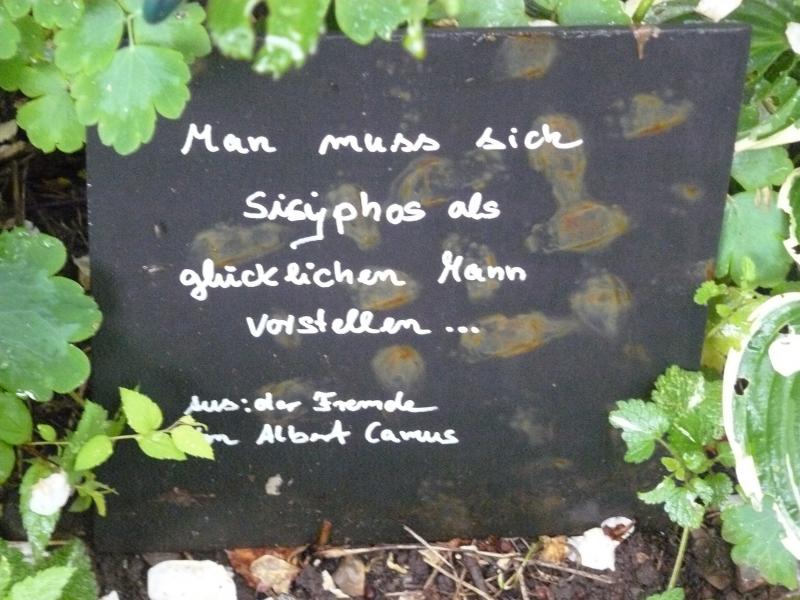 Man muss sich
Sisyphos als
glücklichen Mann
vorstellen ...
Aus: der Fremde
von Albert Camus